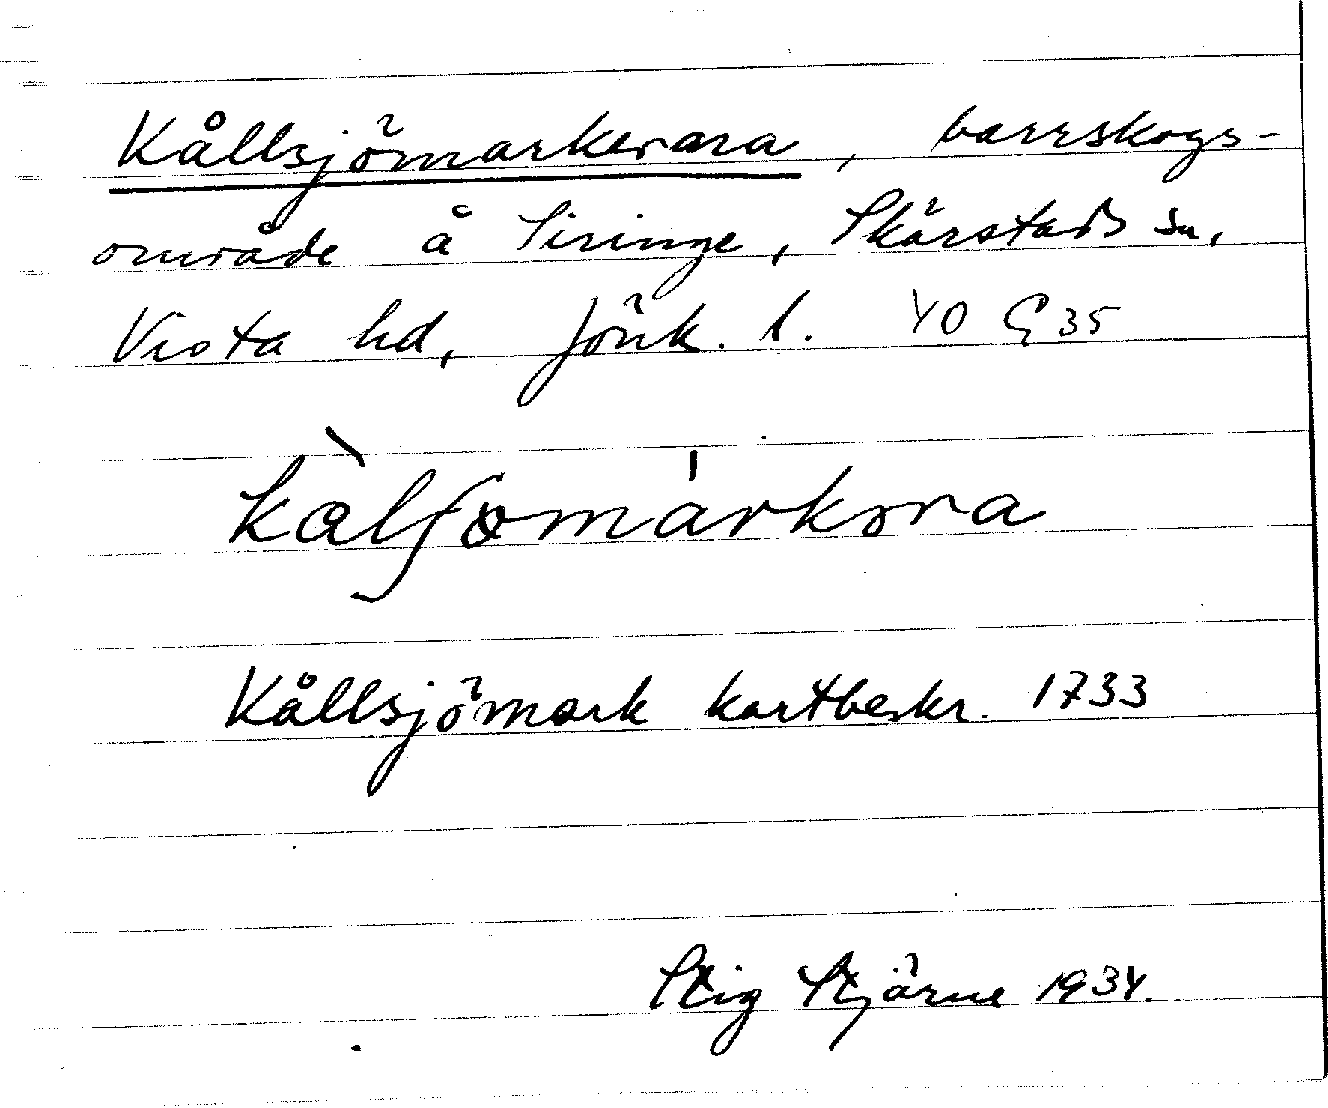 Kållsjömarkerara, barrskogs-
område å Siringe, Skärstads sn,
Vista hd, Jönk. l. YO G 35
kålſomarkρra
Kållsjömark kartbeskr. 1733
Stig Stjärne 1934.